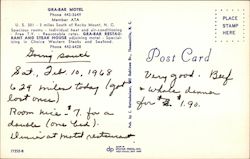 GRA-BAR MOTEL
Phone 442-3249
Member ATA
U. S. 301 - 2 miles South of Rocky Mount, N. C.
Spacious rooms, individual heat and air-conditioning
Free T.V. Reasonable rates. GRA-BAR RESTAU-
RANT AND STEAK HOUSE adjoining motel - Special-
izing in Choice Western Steaks and Seafood.
Phone 442-6428
Going South
Sat, Feb. 10, 1968
629 miles today (got
lost once)
Room nice - $7. for a
double (one bed).
Dinner at motel restaurant
Post Card
Very good.
whole dinner
for $1.90.